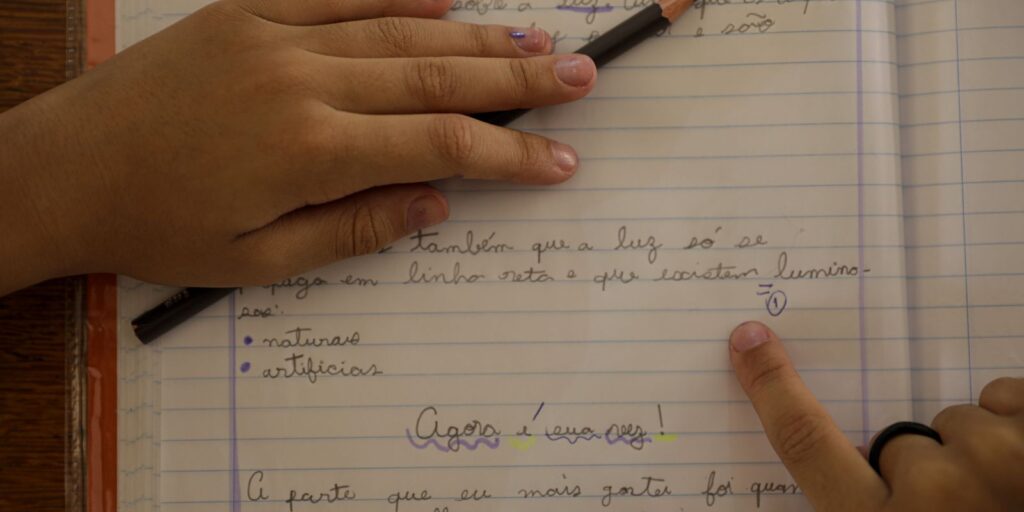 sobre a luz
e são
também que a luz só se
paga em linha reta e que existem lumino-
sas:
1
• naturais
• artificias
Agora é sua vez!
A parte que eu mais gostei foi quan